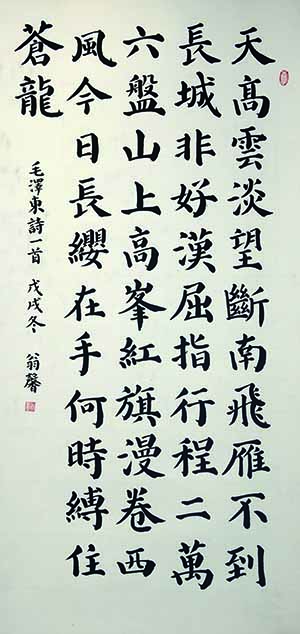 天髙雲淡望斷南飛雁不到
長城非好漢屈指行程二萬
六盤山上高峯紅旗漫卷西
風今日長纓在手何時縛住
蒼龍
毛澤東詩一首 戊戌冬 翁馨